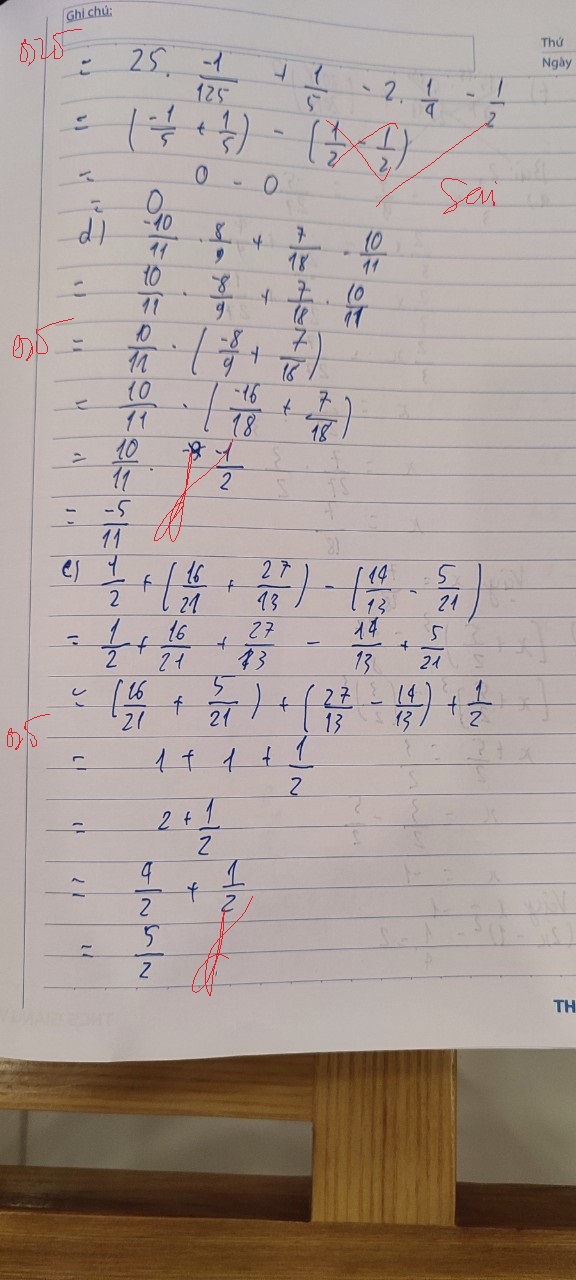 Ghi chú:
Thứ
Ngày
0,25
= 25 . -1/125 + 1/5 - 2 . 1/4 - 1/2
= (-1/5 + 1/5) - (1/2 - 1/2)
= 0 - 0
Sai
= 0
d) -10/11 . 8/9 + 7/18 . 10/11
= 10/11 . -8/9 + 7/18 . 10/11
0,5
= 10/11 . (-8/9 + 7/18)
= 10/11 . (-16/18 + 7/18)
= 10/11 . -1/2
= -5/11
e) 1/2 + (16/21 + 27/13) - (14/13 - 5/21)
= 1/2 + 16/21 + 27/13 - 14/13 + 5/21
= (16/21 + 5/21) + (27/13 - 14/13) + 1/2
0,5
= 1 + 1 + 1/2
= 2 + 1/2
= 4/2 + 1/2
= 5/2
TH